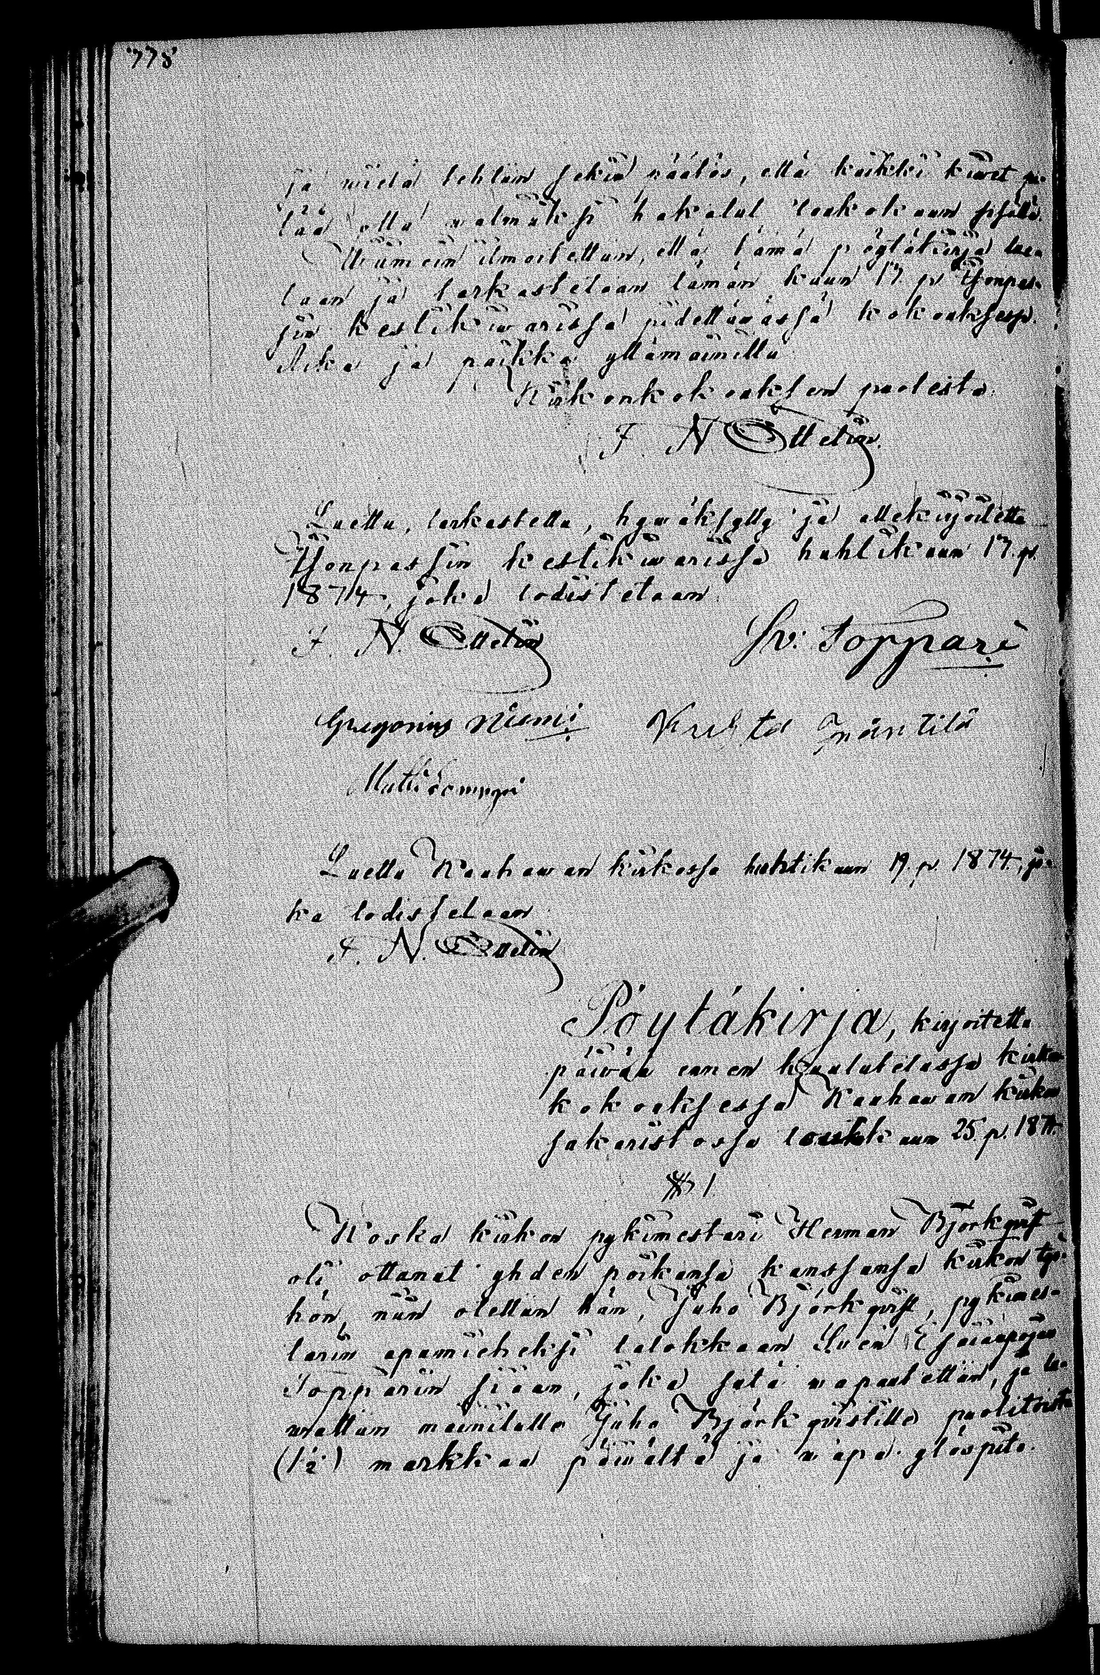 778
ja wielä tehtiin sekin päätös, että kaikki kiwet
olla walmiiksi hakatut toukokuun
Wiimein ilmoitettiin, että tämä pöytäkirja lue-
taan ja tarkastetaan tämän kuun 17 p. Yönpas-
sin kestikiwarissa pidettäwässä kokouksessa.
Aika ja paikka yllämainittu
Kirkonkokouksen puolesta:
F. N. Ottelin.
Luettu, tarkastettu, hywäksytty ja allekirjoitettu
Yönpassin kestikiwarissa huhtikuun 17. p.
1874, joka todistetaan.
F. N. Ottelin
Sv: Toppari
Gregorius Niemi
Krusta Inäntilä
Matti
Luettu Kauhawan kirkossa huhtikuun 19. p. 1874, jo-
ka todistetaan
F. N. Ottelin
Pöytäkirja, kirjoitettu
päiwää ennen kuulutetussa kirkon
kokouksessa Kauhawan kirkon
sakaristossa toukokuun 25. p. 1874.
§ 1.
Koska kirkon pykimestari Herman Björkqvist
oli ottanut yhden poikansa kanssansa kirkon työ-
hön, niin otettiin hän, Juho Björkqvist, pykimes-
tarin apumieheksi talokkaan Sven Esaiaspojan
Topparin sijaan, joka siitä wapautettiin, ja lu-
wattiin mainitulle Juho Björkqvistille puolitoista
(1½) markkaa päiwältä ja wapa ylöspito.